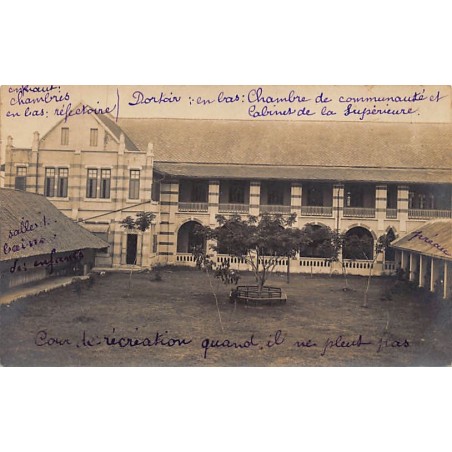 en haut:
chambres
en bas: réfectoire
Dortoir : en bas: Chambre de communauté et
Cabinet de la Supérieure.
salles:
bains:
des enfants
préau
Cour de récréation quand il ne pleut pas